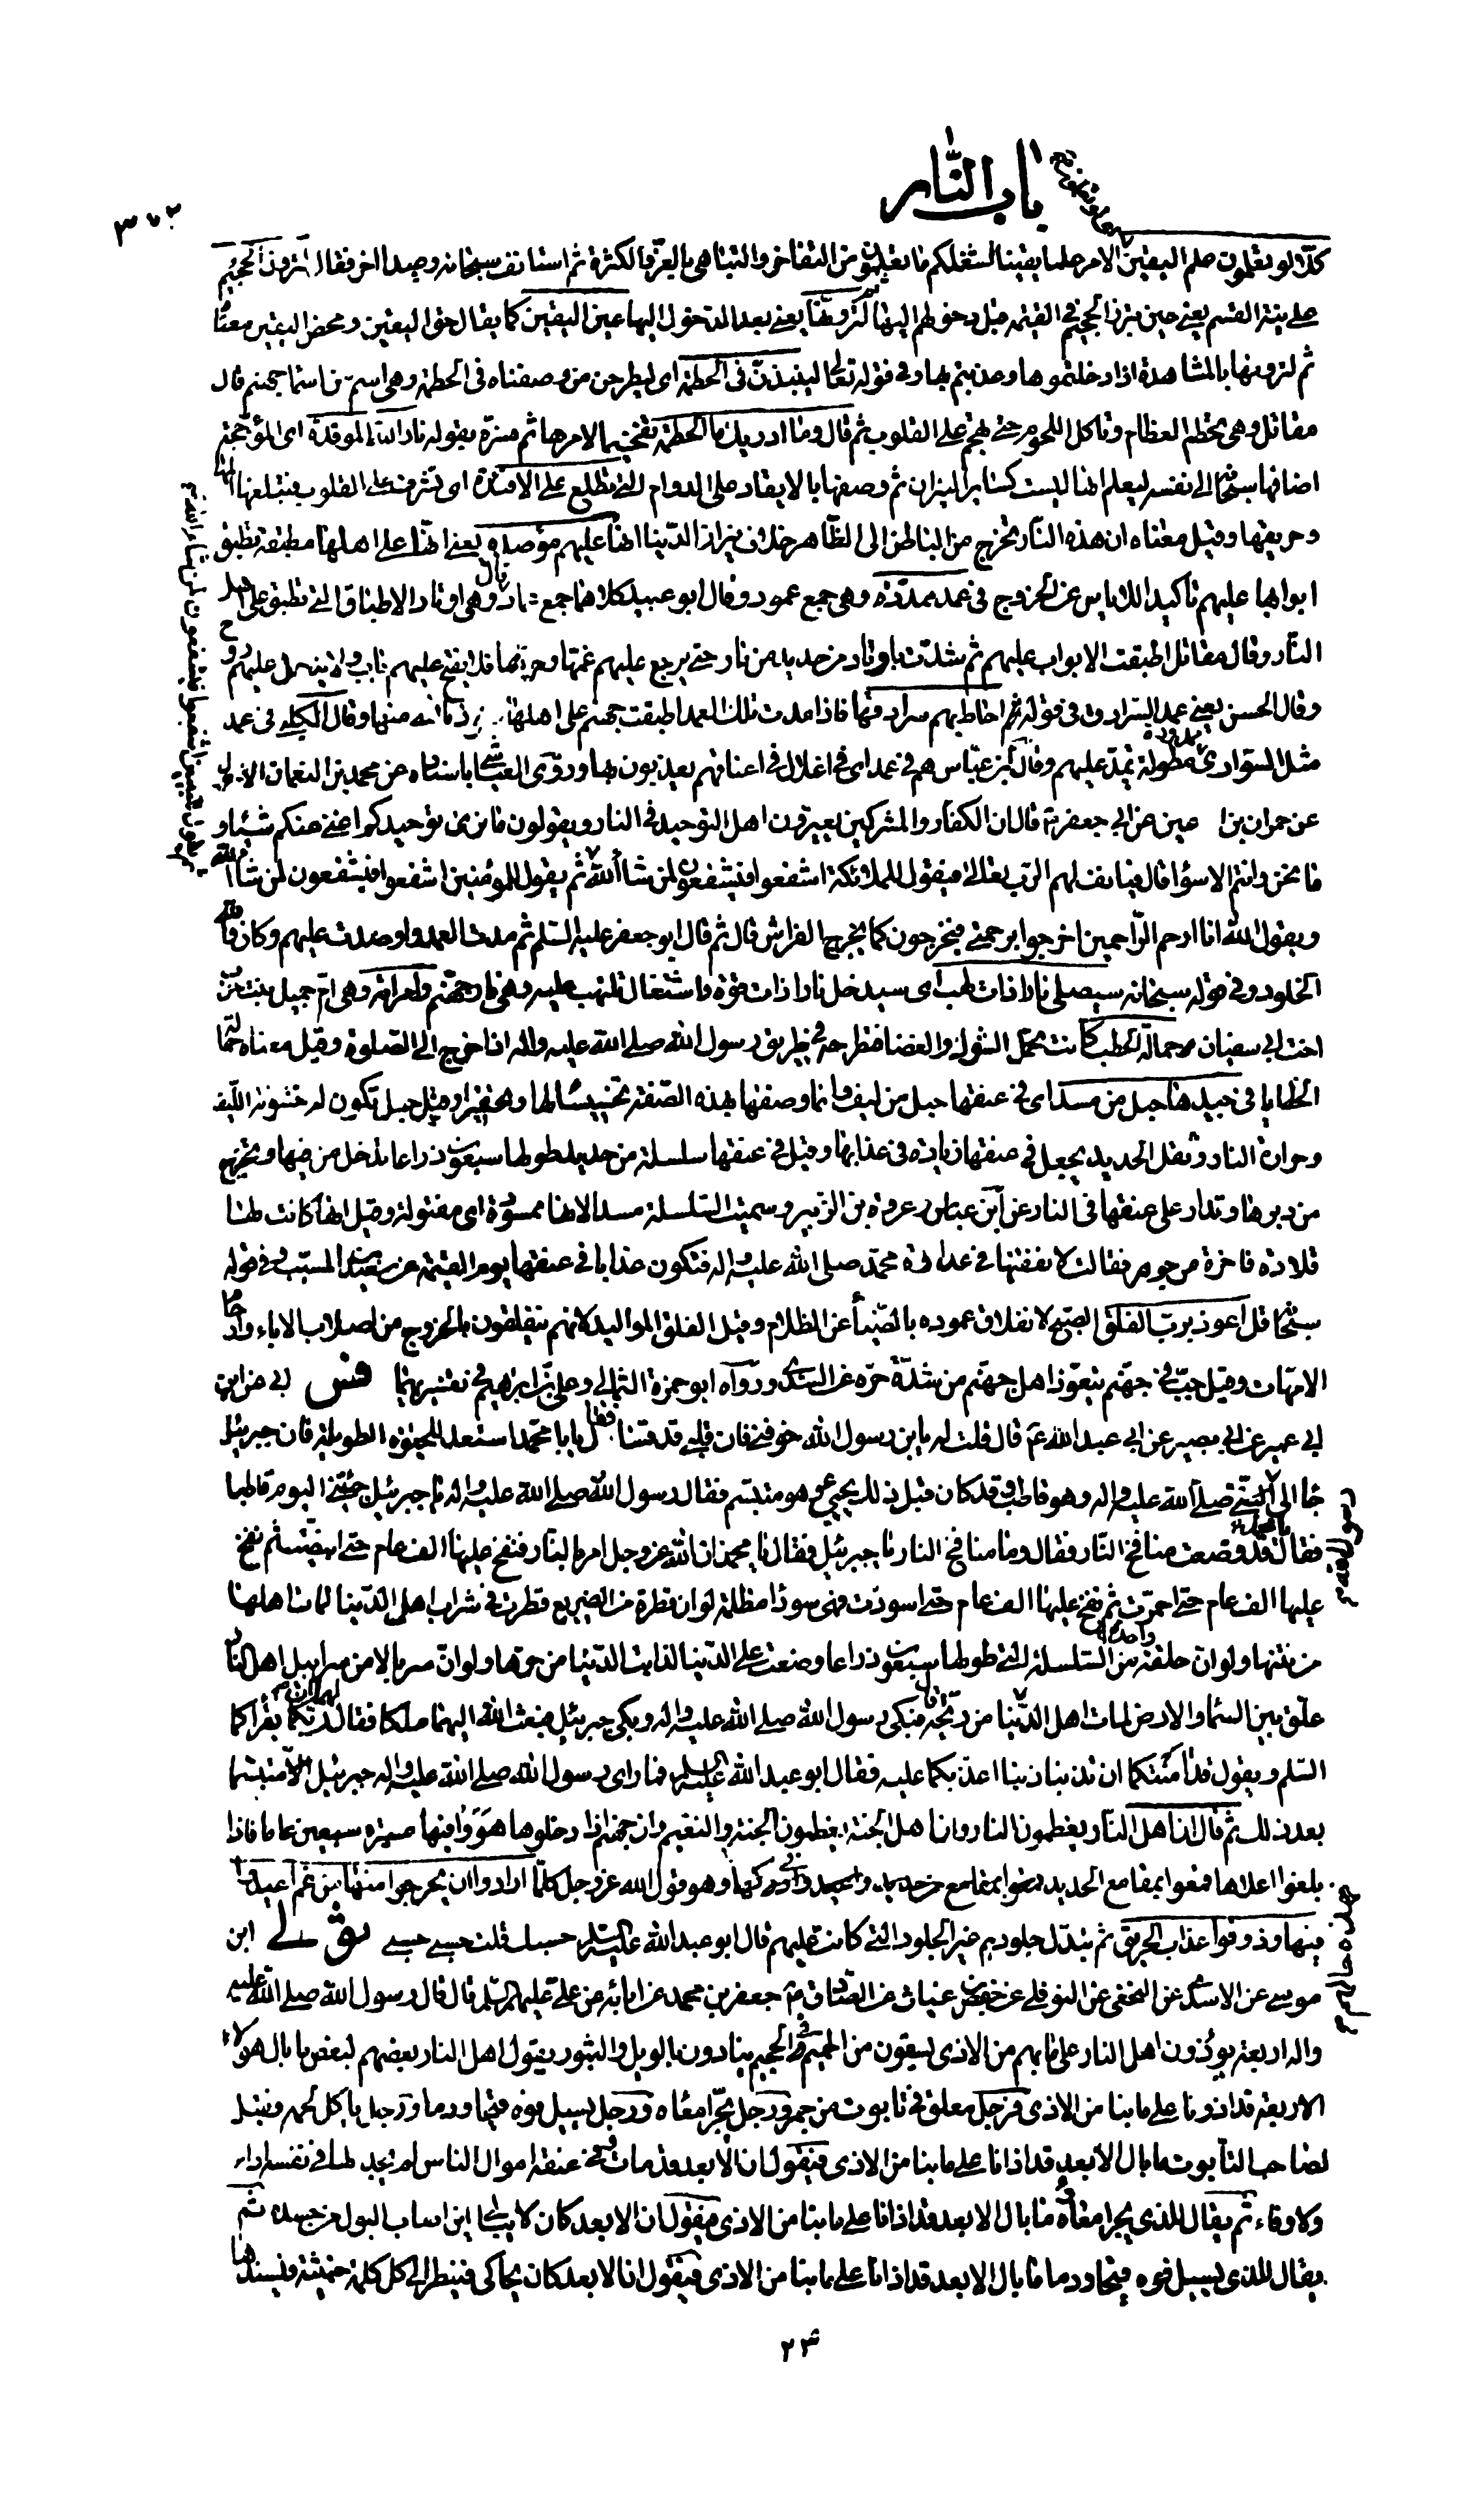 باب النار
٣٧٢
كلا لو تعلمون علم اليقين الامر علما يقينا لشغلكم ما تعلمون من التفاخر والتباهى بالعز والكثرة ثم استانف سبحانه وعيدا اخر فقال لترون الجحيم
على نية القسم يعنى حين تبرز الجحيم فى القيمة قبل دخولهم اليها ثم لترونها يعنى بعد الدخول اليها عين اليقين كما يقال حق اليقين ومحض اليقين معناه
ثم لترونها بالمشاهدة اذا دخلتموها وعذبتم بها وفى قوله تعالى لينبذن فى الحطمة اى ليطرحن من وصفناه فى الحطمة وهى اسم من اسماء جهنم قال
مقاتل وهى تحطم العظام وتاكل اللحوم حتى تهجم على القلوب ثم قال وما ادريك ما الحطمة تفخيما لامرها ثم فسره بقوله نار الله الموقدة اى المؤججة
اضافها سبحانه الى نفسه ليعلم انها ليست كسائر النيران ثم وصفها بالايقاد على الدوام التى تطلع على الافئدة اى تشرف على القلوب فيبلغها المها
وحريقها وقيل معناه ان هذه النار تخرج من الباطن الى الظاهر خلاف نيران الدنيا انها عليهم مؤصدة يعنى انها على اهلها مطبقة تطبق
ابوابها عليهم تاكيدا للاياس عن الخروج فى عمد ممددة وهى جمع عمود وقال ابو عبيد كلاهما جمع عماد قال وهى اوتاد الاطباق التى تطبق على اهل
النار وقال مقاتل اطبقت الابواب عليهم ثم شدت باوتاد من حديد من نار حتى يرجع عليهم غمها وحرها فلا يفتح عليهم باب ولا يدخل عليهم روح
وقال الحسن يعنى عمد السرادق فى قوله احاط بهم سرادقها فاذا مدت تلك العمد اطبقت جهنم على اهلها نعوذ بالله منها وقال الكلبى فى عمد
مثل السوارى ممدودة مطولة تمد عليهم وقال ابن عباس هم فى عمد اى فى اغلال فى اعناقهم يعذبون بها وروى العياشى باسناده عن محمد بن النعمان الاحول
عن حمران بن اعين عن ابى جعفر ع قال ان الكفار والمشركين يعيرون اهل التوحيد فى النار ويقولون ما نرى توحيدكم اغنى عنكم شيئا و
ما نحن وانتم الا سواء قال فيانف لهم الرب تعالى فيقول للملائكة اشفعوا فيشفعون لمن شاء الله ثم يقول للمؤمنين اشفعوا فيشفعون لمن شاء الله
ويقول الله انا ارحم الراحمين اخرجوا برحمتى فيخرجون كما يخرج الفراش قال ثم قال ابو جعفر عليه السلم ثم مدت العمد واوصدت عليهم وكان والله
الخلود وفى قوله سبحانه سيصلى نارا ذات لهب اى سيدخل نارا ذات قوة واشتعال تلتهب عليه وهى نار جهنم وامراته وهى ام جميل بنت حرب
اخت ابى سفيان حمالة الحطب كانت تحمل الشوك والعضاء فتطرحه فى طريق رسول الله صلى الله عليه واله اذا خرج الى الصلوة وقيل معناه حمالة
الخطايا فى جيدها حبل من مسد اى فى عنقها حبل من ليف وانما وصفها بهذه الصفة تخسيسا لها وتحقيرا وقيل حبل تكون له خشونة الليف
وحرارة النار وثقل الحديد يجعل فى عنقها زيادة فى عذابها وقيل فى عنقها سلسلة من حديد طولها سبعون ذراعا تدخل من فيها وتخرج
من دبرها وتدار على عنقها فى النار عن ابن عباس وعروة بن الزبير وسميت السلسلة مسدا لانها ممسودة اى مفتولة وقيل انها كانت لها
قلادة فاخرة من جوهر فقالت لانفقنها فى عداوة محمد صلى الله عليه واله فتكون عذابا فى عنقها يوم القيمة عن سعيد بن المسيب وفى قوله
سبحانه قل اعوذ برب الفلق الصبح لانفلاق عموده بالضياء عن الظلام وقيل الفلق المواليد لانهم ينفلقون بالخروج من اصلاب الاباء وارحام
الامهات وقيل جب فى جهنم يتعوذ اهل جهنم من شدة حره عن السدى ورواه ابو حمزة الثمالى وعلى بن ابراهيم فى تفسيرهما فس ابى عن ابن
ابى عمير عن ابى بصير عن ابى عبد الله ع قال قلت له يا بن رسول الله خوفنى فان قلبى قد قسا فقال يا با محمد استعد للحيوة الطويلة فان جبرئيل
جاء الى النبى صلى الله عليه واله وهو قاطب وقد كان قبل ذلك يجيئ وهو متبسم فقال رسول الله صلى الله عليه واله يا جبرئيل جئتنى اليوم قاطبا
فقال يا محمد قد وضعت منافخ النار فقال وما منافخ النار يا جبرئيل فقال يا محمد ان الله عز وجل امر بالنار فنفخ عليها الف عام حتى ابيضت ثم نفخ
عليها الف عام حتى احمرت ثم نفخ عليها الف عام حتى اسودت فهى سوداء مظلمة لو ان قطرة من الضريع قطرت فى شراب اهل الدنيا لمات اهلها
من نتنها ولو ان حلقة واحدة من السلسلة التى طولها سبعون ذراعا وضعت على الدنيا لذابت الدنيا من حرها ولو ان سربالا من سرابيل اهل النار
علق بين السماء والارض لمات اهل الدنيا من ريحه قال فبكى رسول الله صلى الله عليه واله وبكى جبرئيل فبعث الله اليهما ملكا فقال لهما ان ربكما يقراكما
السلم ويقول قد امنتكما ان تذنبا ذنبا اعذبكما عليه فقال ابو عبد الله عليه السلم فما راى رسول الله صلى الله عليه واله جبرئيل متبسما
بعد ذلك ثم قال ان اهل النار يعظمون النار وان اهل الجنة يعظمون الجنة والنعيم وان جهنم اذا دخلوها هووا فيها مسيرة سبعين عاما فاذا
بلغوا اعلاها قمعوا بمقامع الحديد وهو قول الله عز وجل كلما ارادوا ان يخرجوا منها من غم اعيدوا
فيها وذوقوا عذاب الحريق ثم تبدل جلودهم غير الجلود التى كانت عليهم قال ابو عبد الله عليه السلم حسبك قلت حسبى حسبى ابن
موسى عن الاسدى عن النخعى عن النوفلى عن حفص بن غياث عن الصادق جعفر بن محمد عن ابائه عن على عليهم السلم قال قال رسول الله صلى الله عليه
واله اربعة يؤذون اهل النار على ما بهم من الاذى يسقون من الحميم فى الجحيم ينادون بالويل والثبور يقول اهل النار بعضهم لبعض ما بال هؤلاء
الاربعة قد اذونا على ما بنا من الاذى فرجل معلق فى تابوت من جمر ورجل يجر امعاه ورجل يسيل فوه قيحا ودما ورجل ياكل لحمه فقيل
لصاحب التابوت ما بال الابعد قد اذانا على ما بنا من الاذى فيقول ان الابعد قد مات وفى عنقه اموال الناس لم يجد لها فى نفسه اداء
ولا وفاء ثم يقال للذى يجر امعاه ما بال الابعد قد اذانا على ما بنا من الاذى فيقول ان الابعد كان لا يبالى اين اصاب البول من جسده ثم
يقال للذى يسيل فوه قيحا ودما ما بال الابعد قد اذانا على ما بنا من الاذى فيقول ان الابعد كان يحاكى فينظر الى كل كلمة خبيثة فيسندها